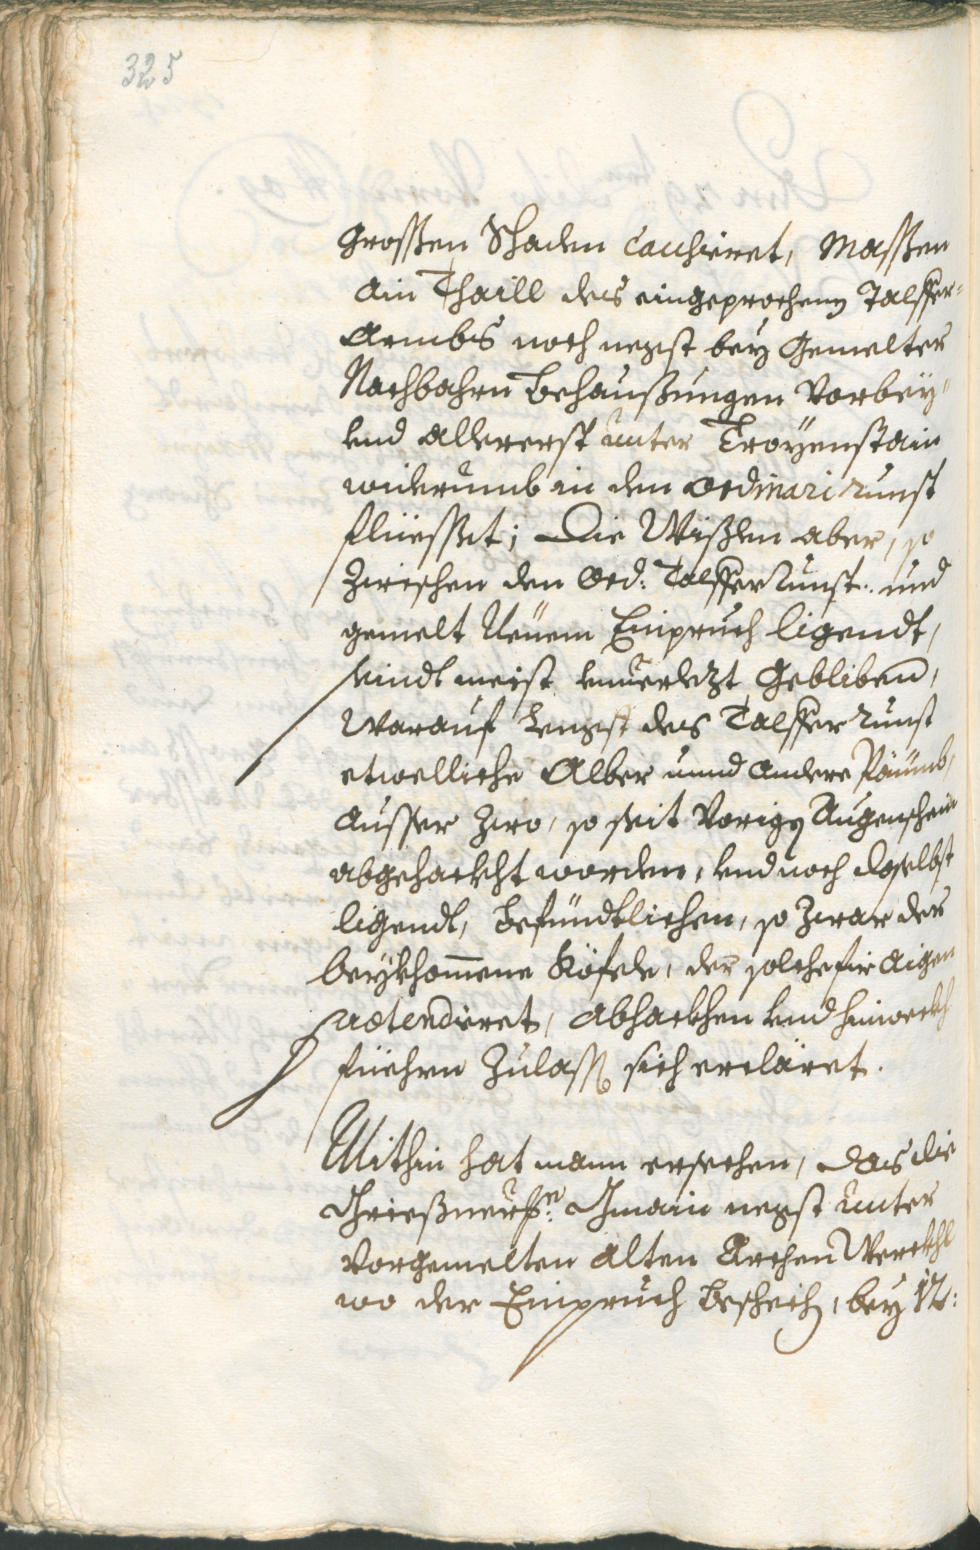 325
Grossen Schaden causieret, massen
ain Thaill des eingeprochenen Talffer=
Armbs noch negst bey gemelter
Nachbahrn Behaußungen vorbey=
vnd allererst unter Troyenstain
widerumb in den ordinari runst
fliesset; Die Wißen aber, so
zwischen den ord: Talffer Runst: und
gemelt Neuem Einpruch ligendt,
seindt meist vnuerlezt gebliben,
Warauf lengst des Talffer Runst
etwelliche Alber unnd andere Päumb,
ausser zwo, so seit vorigen Augenschein
abgehackht worden, vnd noch daselbst
ligendt, befündtlichen, so zwar der
beykhommene Köfele, der solche für aigen
praetendieret, abhackhen vnd hinweckh
fiehren zulassen sich ercläret.
Mithin hat mann ersechen, das die
Grießnerische Gmain negst unter
vorgemelten alten Archen Werckhl
wo der Einpruch beschech, bey 12: